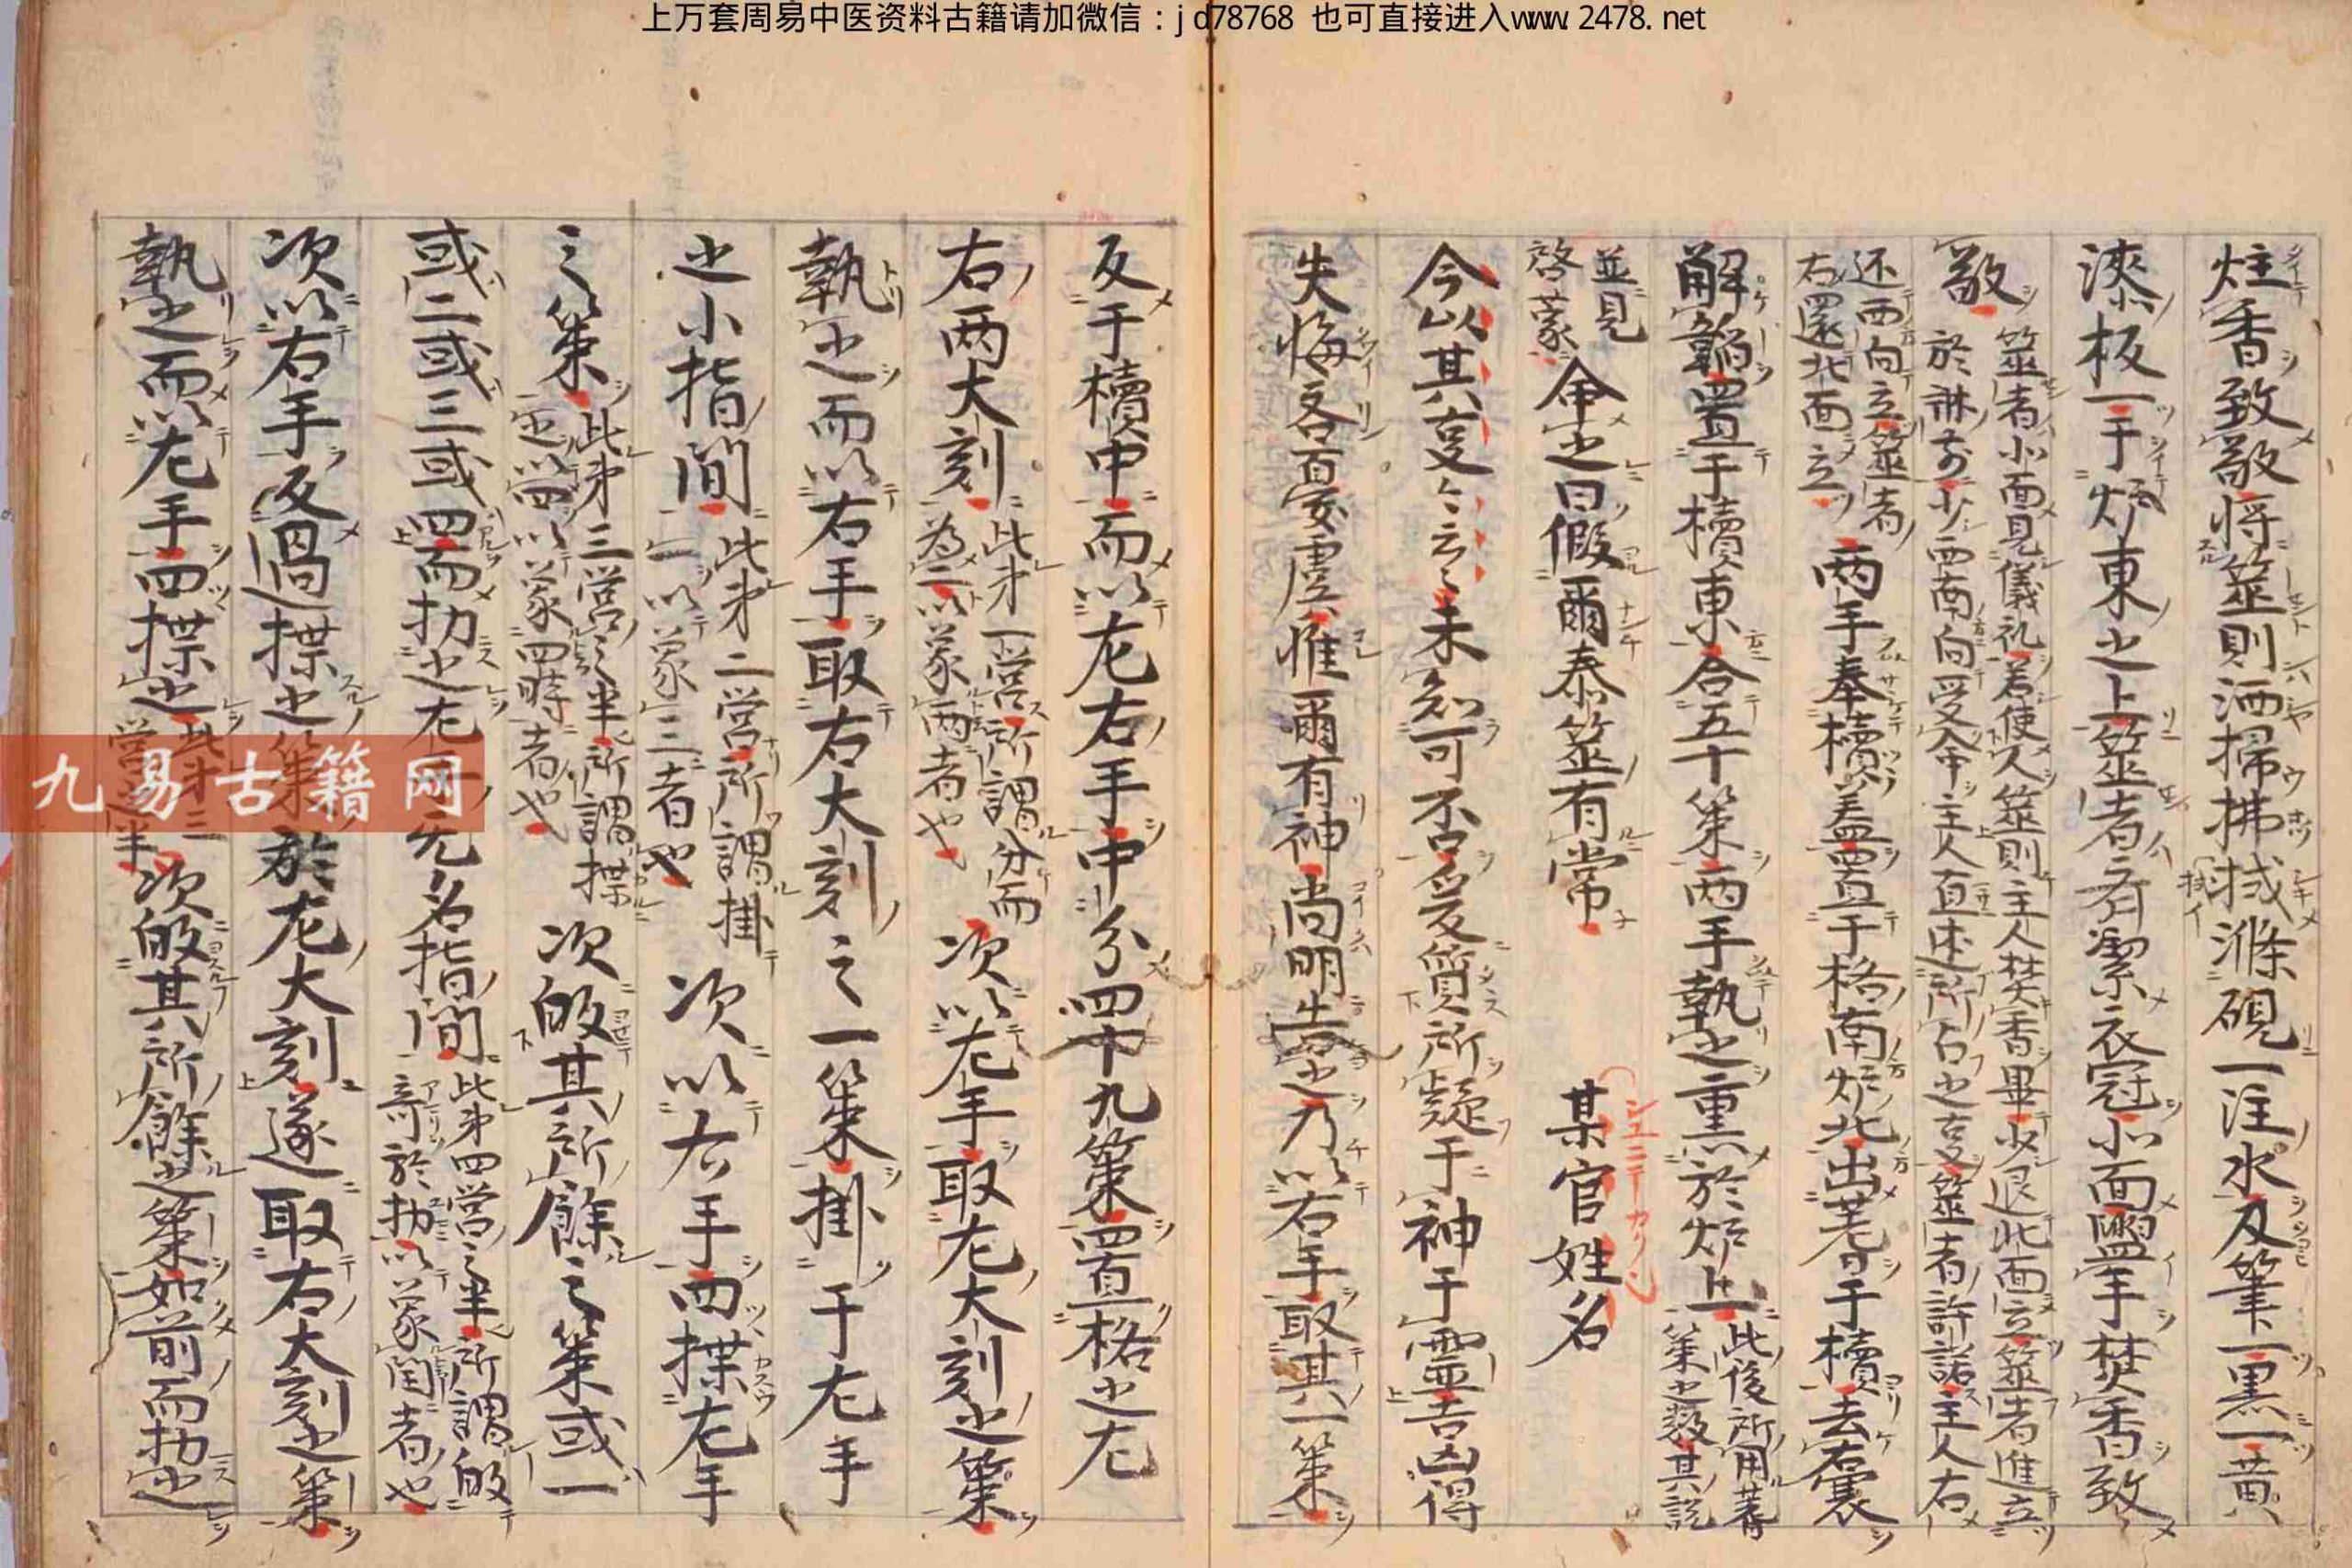 上万套周易中医资料古籍请加微信：jd78768 也可直接进入www.2478.net
炷香致敬将筮則洒掃拂拭滌硯一注水及筆一黒一黄
漆板一于炉東之上筮者斉潔衣冠北面盥手焚香致
敬
筮者北面見儀礼若使人筮則主人焚香畢少退北面立筮者進立
於牀前少西南向受命主人直述所占之事筮者許諾主人右
还西向立筮者
右還北面立
両手奉櫝蓋置于格南炉北出蓍于櫝去囊
解韜置于櫝東合五十策両手執之熏於炉上
此後所用蓍
策之数其説
並見
啓蒙
命之曰假爾泰筮有常
某官姓名
今以其事々云々未知可否爰質所疑于神于霊吉凶得
失悔吝憂虞惟爾有神尚明告之乃以右手取其一策
反于櫝中而以左右手中分四十九策置格之左
右両大刻
此第一営所謂分而
為二以象両者也
次以左手取左大刻之策
執之而以右手取右大刻之一策掛于左手
之小指間
此第二営所謂掛
一以象三者也
次以右手四揲左手
之策
此第三営之半所謂揲
之以四以象四時者也
次皈其所餘之策或一
或二或三或四而扐之左手无名指間
此第四営之半所謂皈
竒於扐以象閏者也
次以右手反過揲之策於左大刻遂取右大刻之策
執之而以左手四揲之
此第三
営之半
次皈其所餘之策如前而扐之
九易古籍网